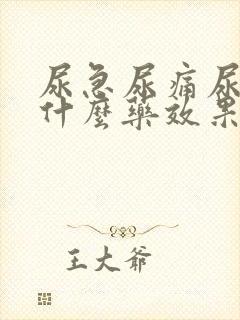 尿急尿痛尿
什麼藥效果
王大爺